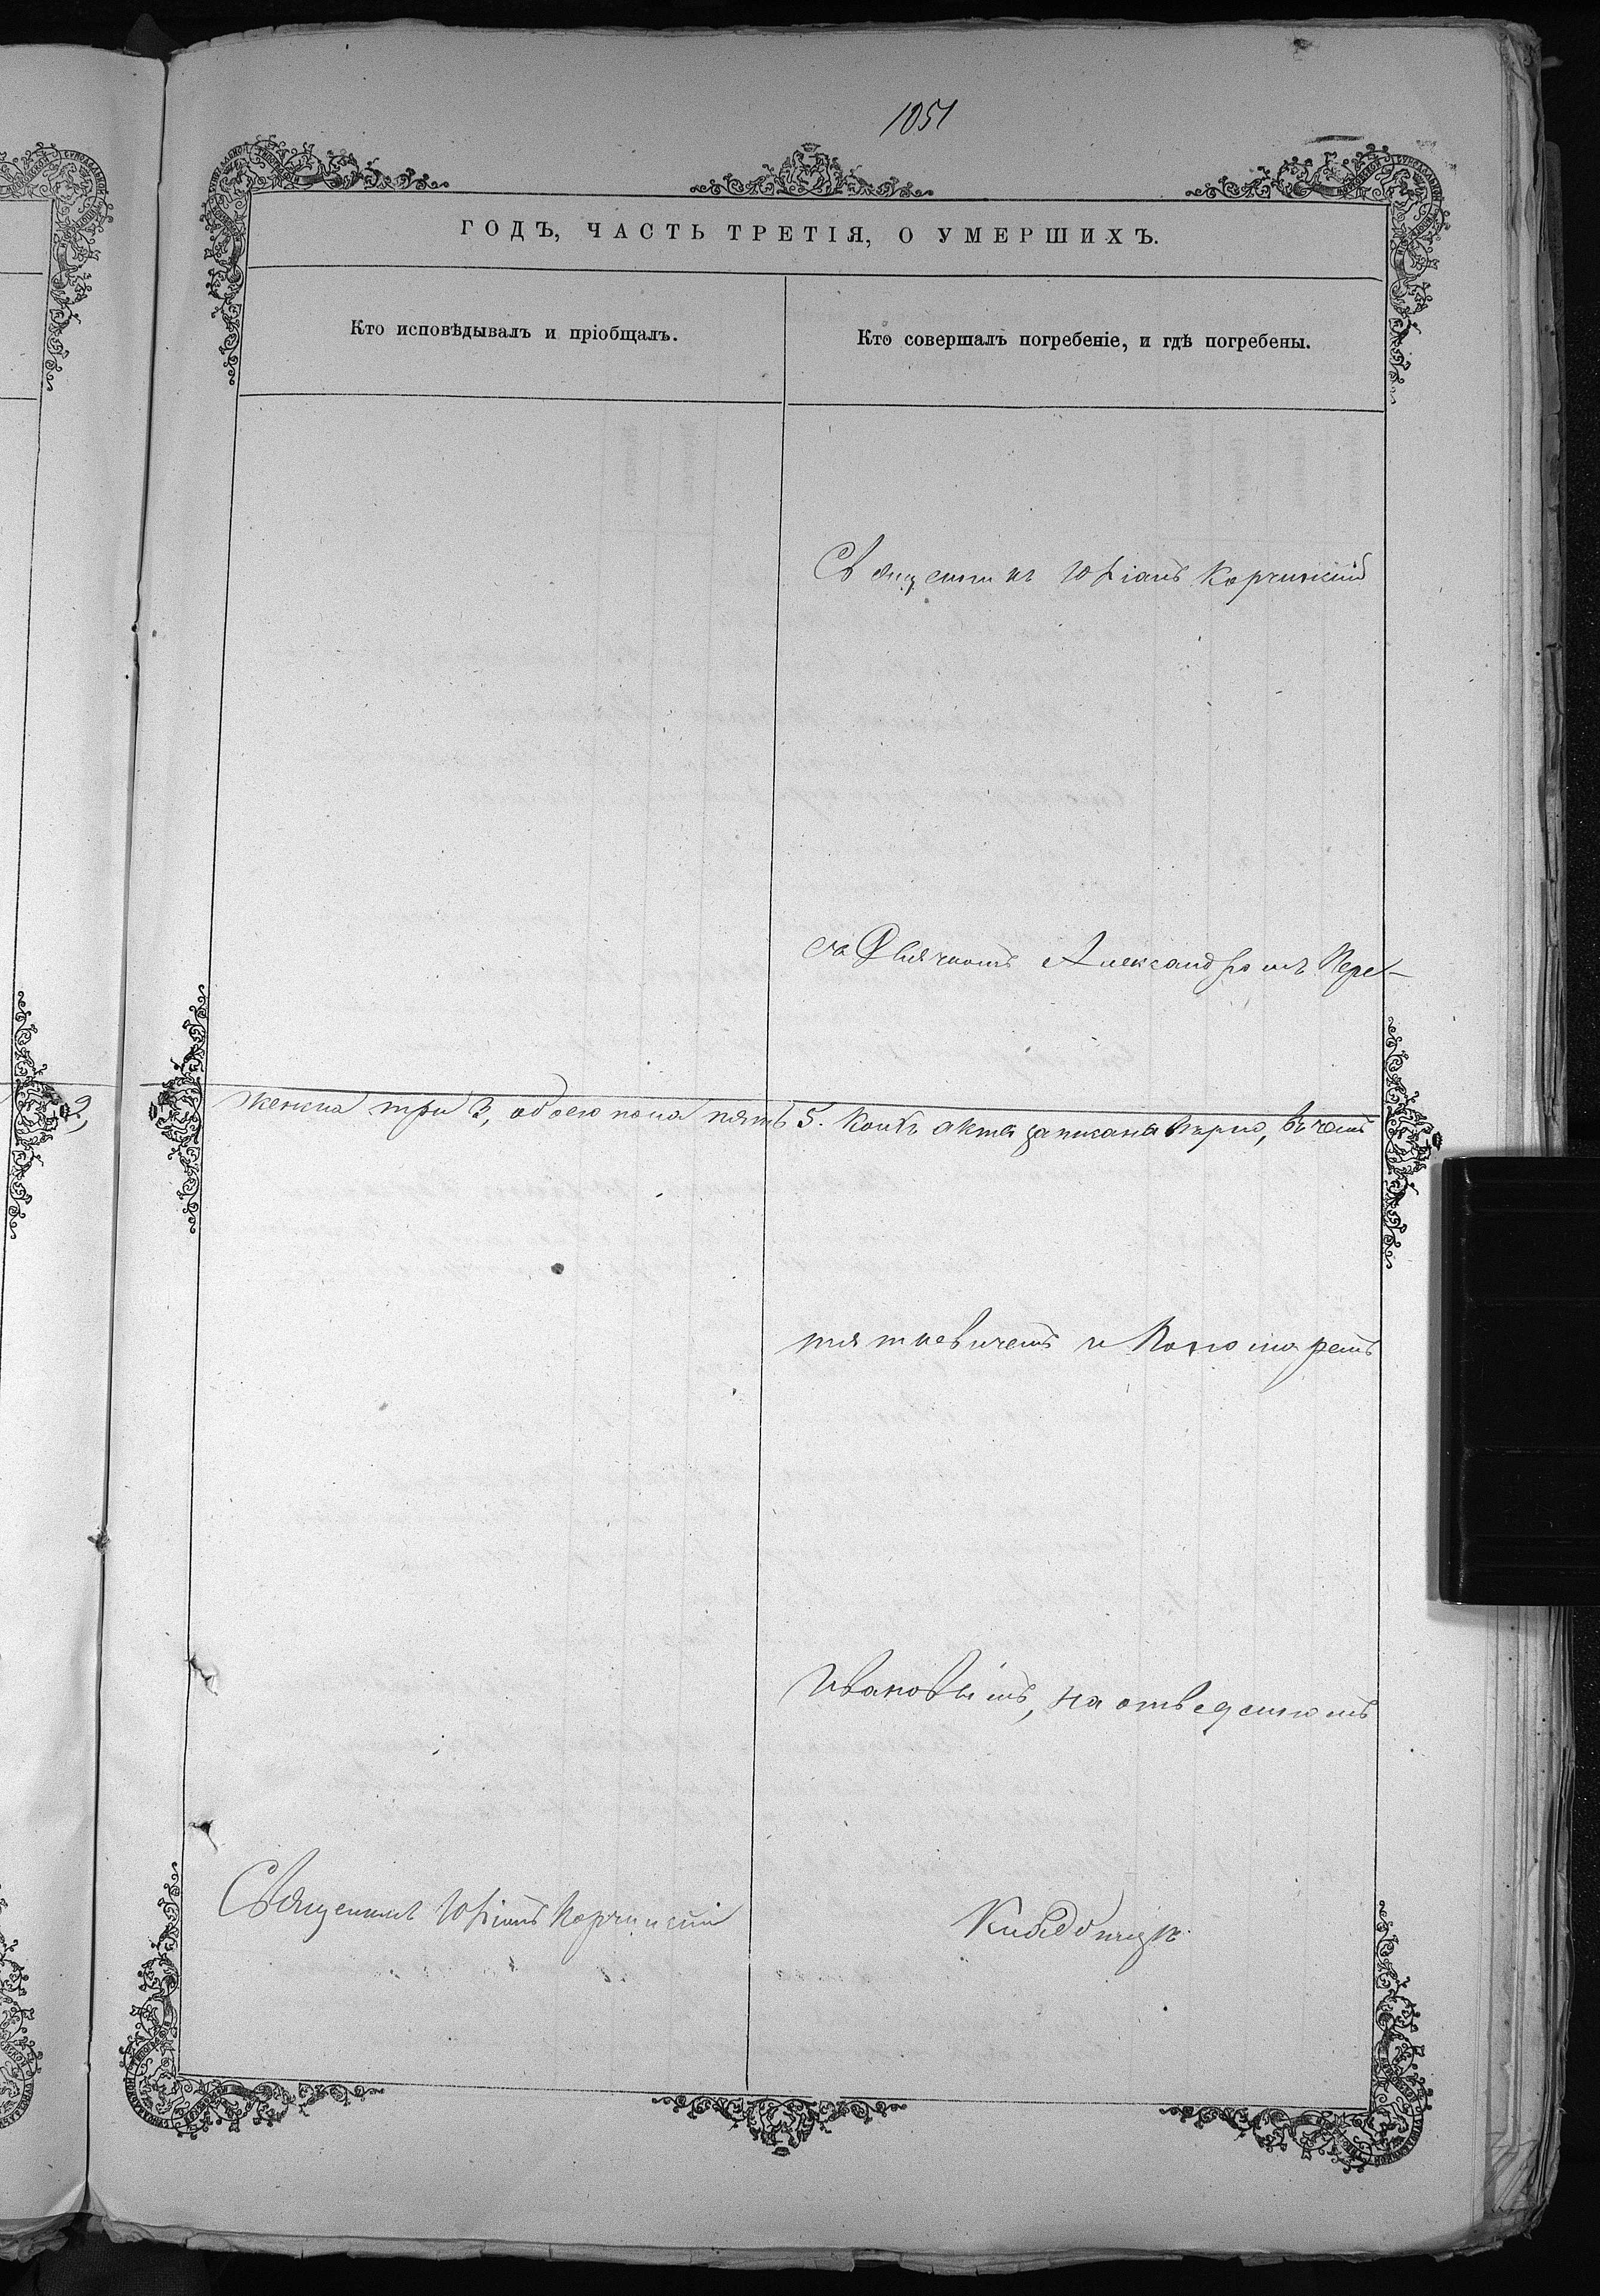 1051
ГОДЪ, ЧАСТЬ ТРЕТІЯ, О УМЕРШИХЪ.
Кто исповѣдывалъ и пріобщалъ.
Кто совершалъ погребеніе, и гдѣ погребены.
Священникъ Юліанъ Корчинскій
съ Дьячкомъ Александромъ Пере-
женска три 3, обоего пола пять 5. Коихъ акта записана вѣрно, въ чемъ
тятковичемъ и Пономаремъ
Ивановымъ, на отведенномъ
Священникъ Юліанъ Корчинскій
Кладбищѣ